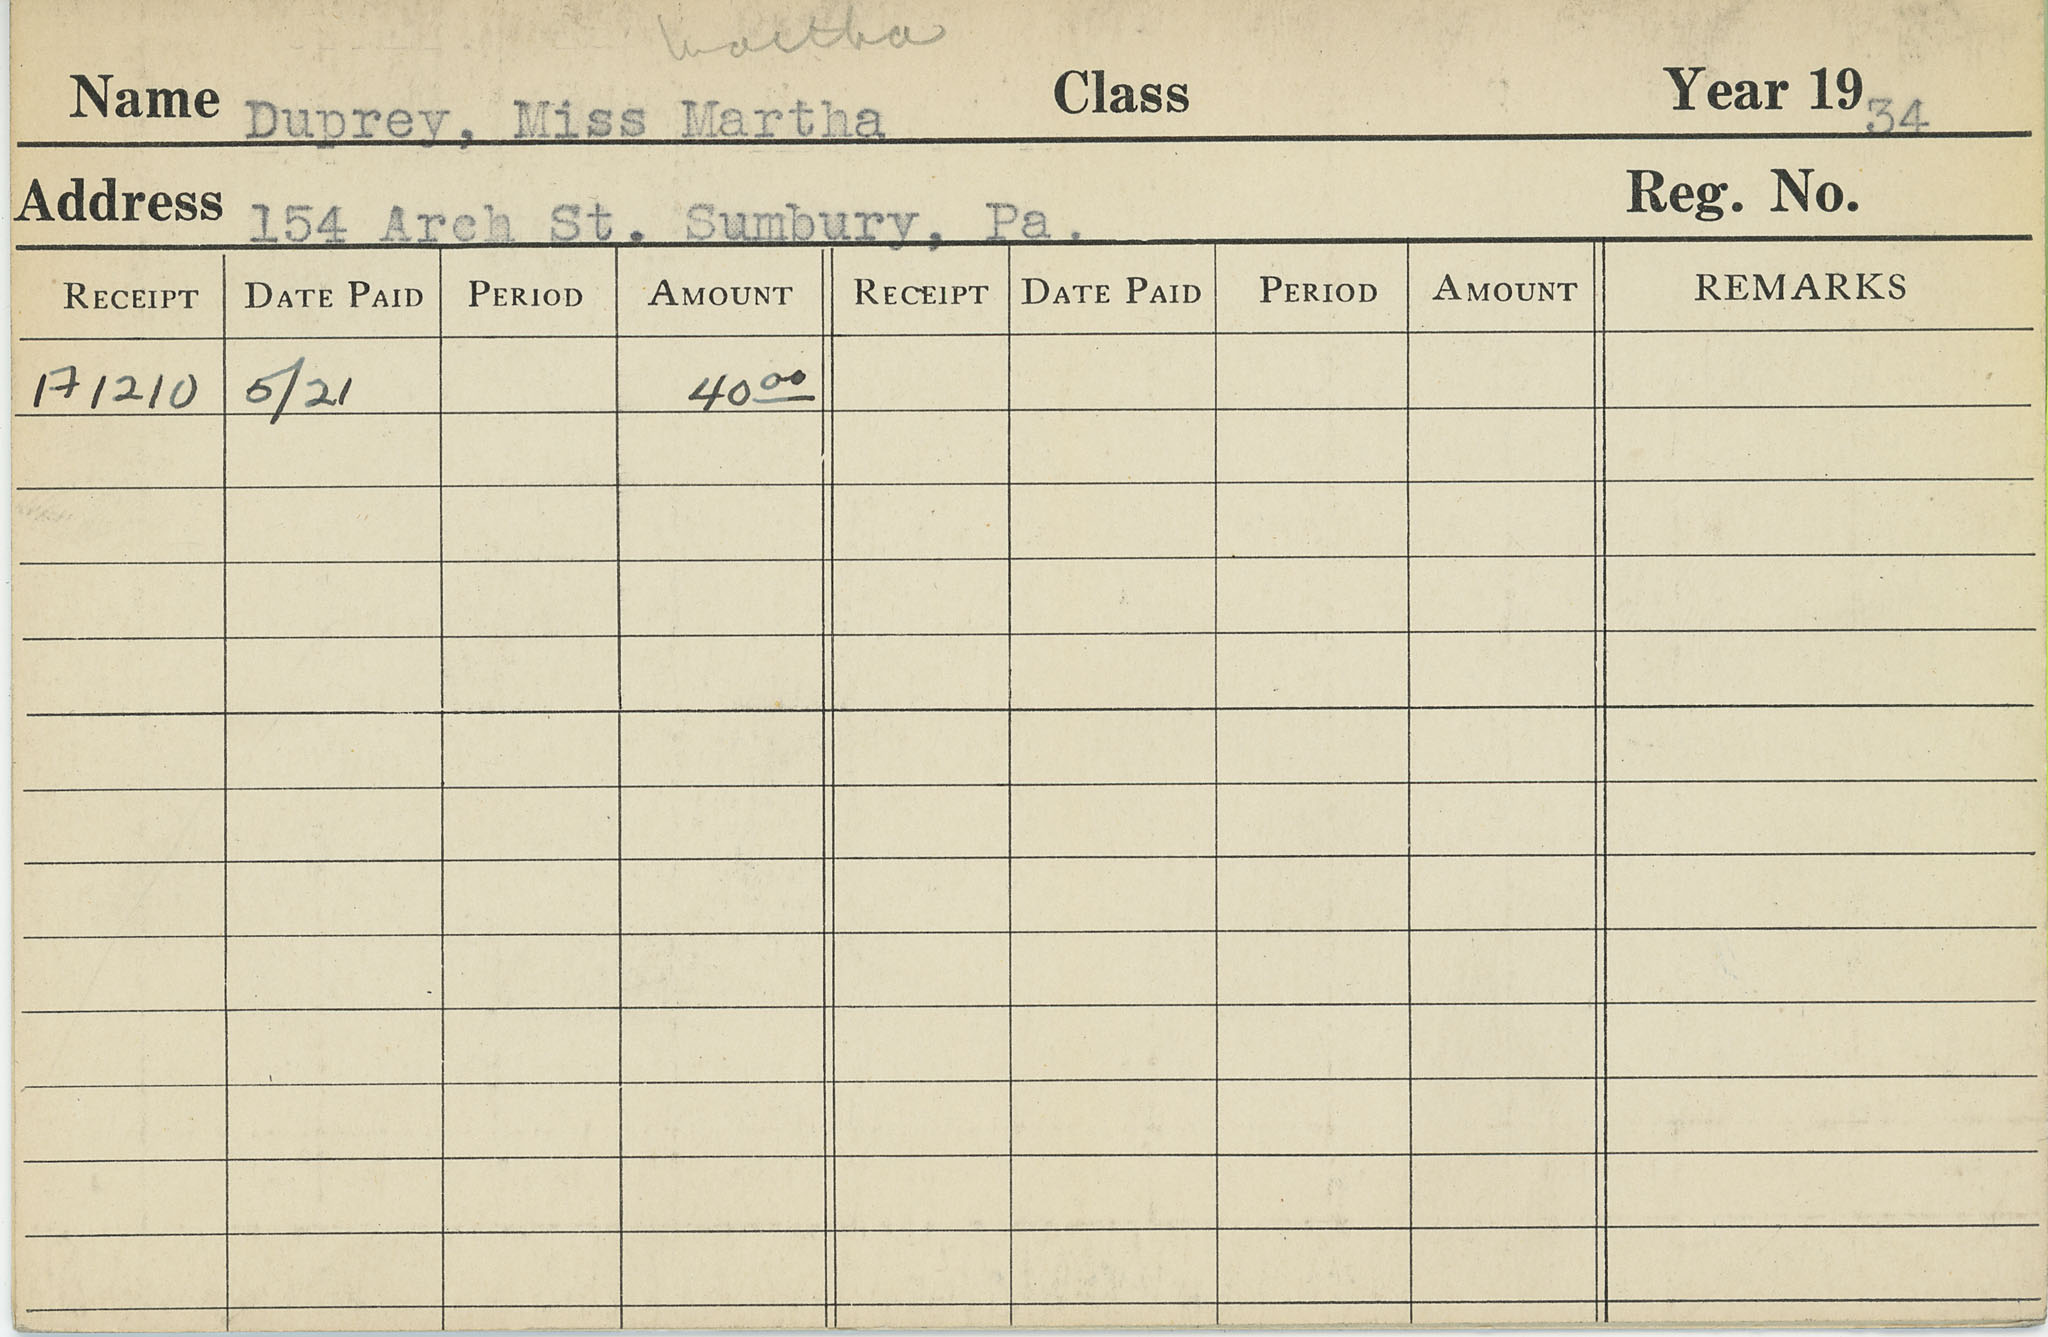 Martha
Name Duprey, Miss Martha Class Year 1934
Address 154 Arch St. Sumbury, Pa. Reg. No.
RECEIPT DATE PAID PERIOD AMOUNT RECEIPT DATE PAID PERIOD AMOUNT REMARKS
171210 5/21 40 00